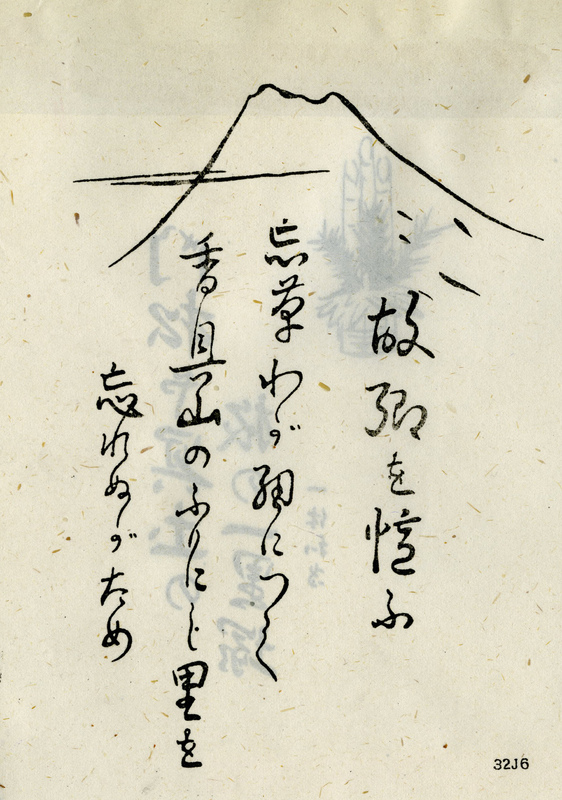 故郷を憶ふ
忘草わが紐につく
香具山のふりにし里を
忘れぬがため
32J6